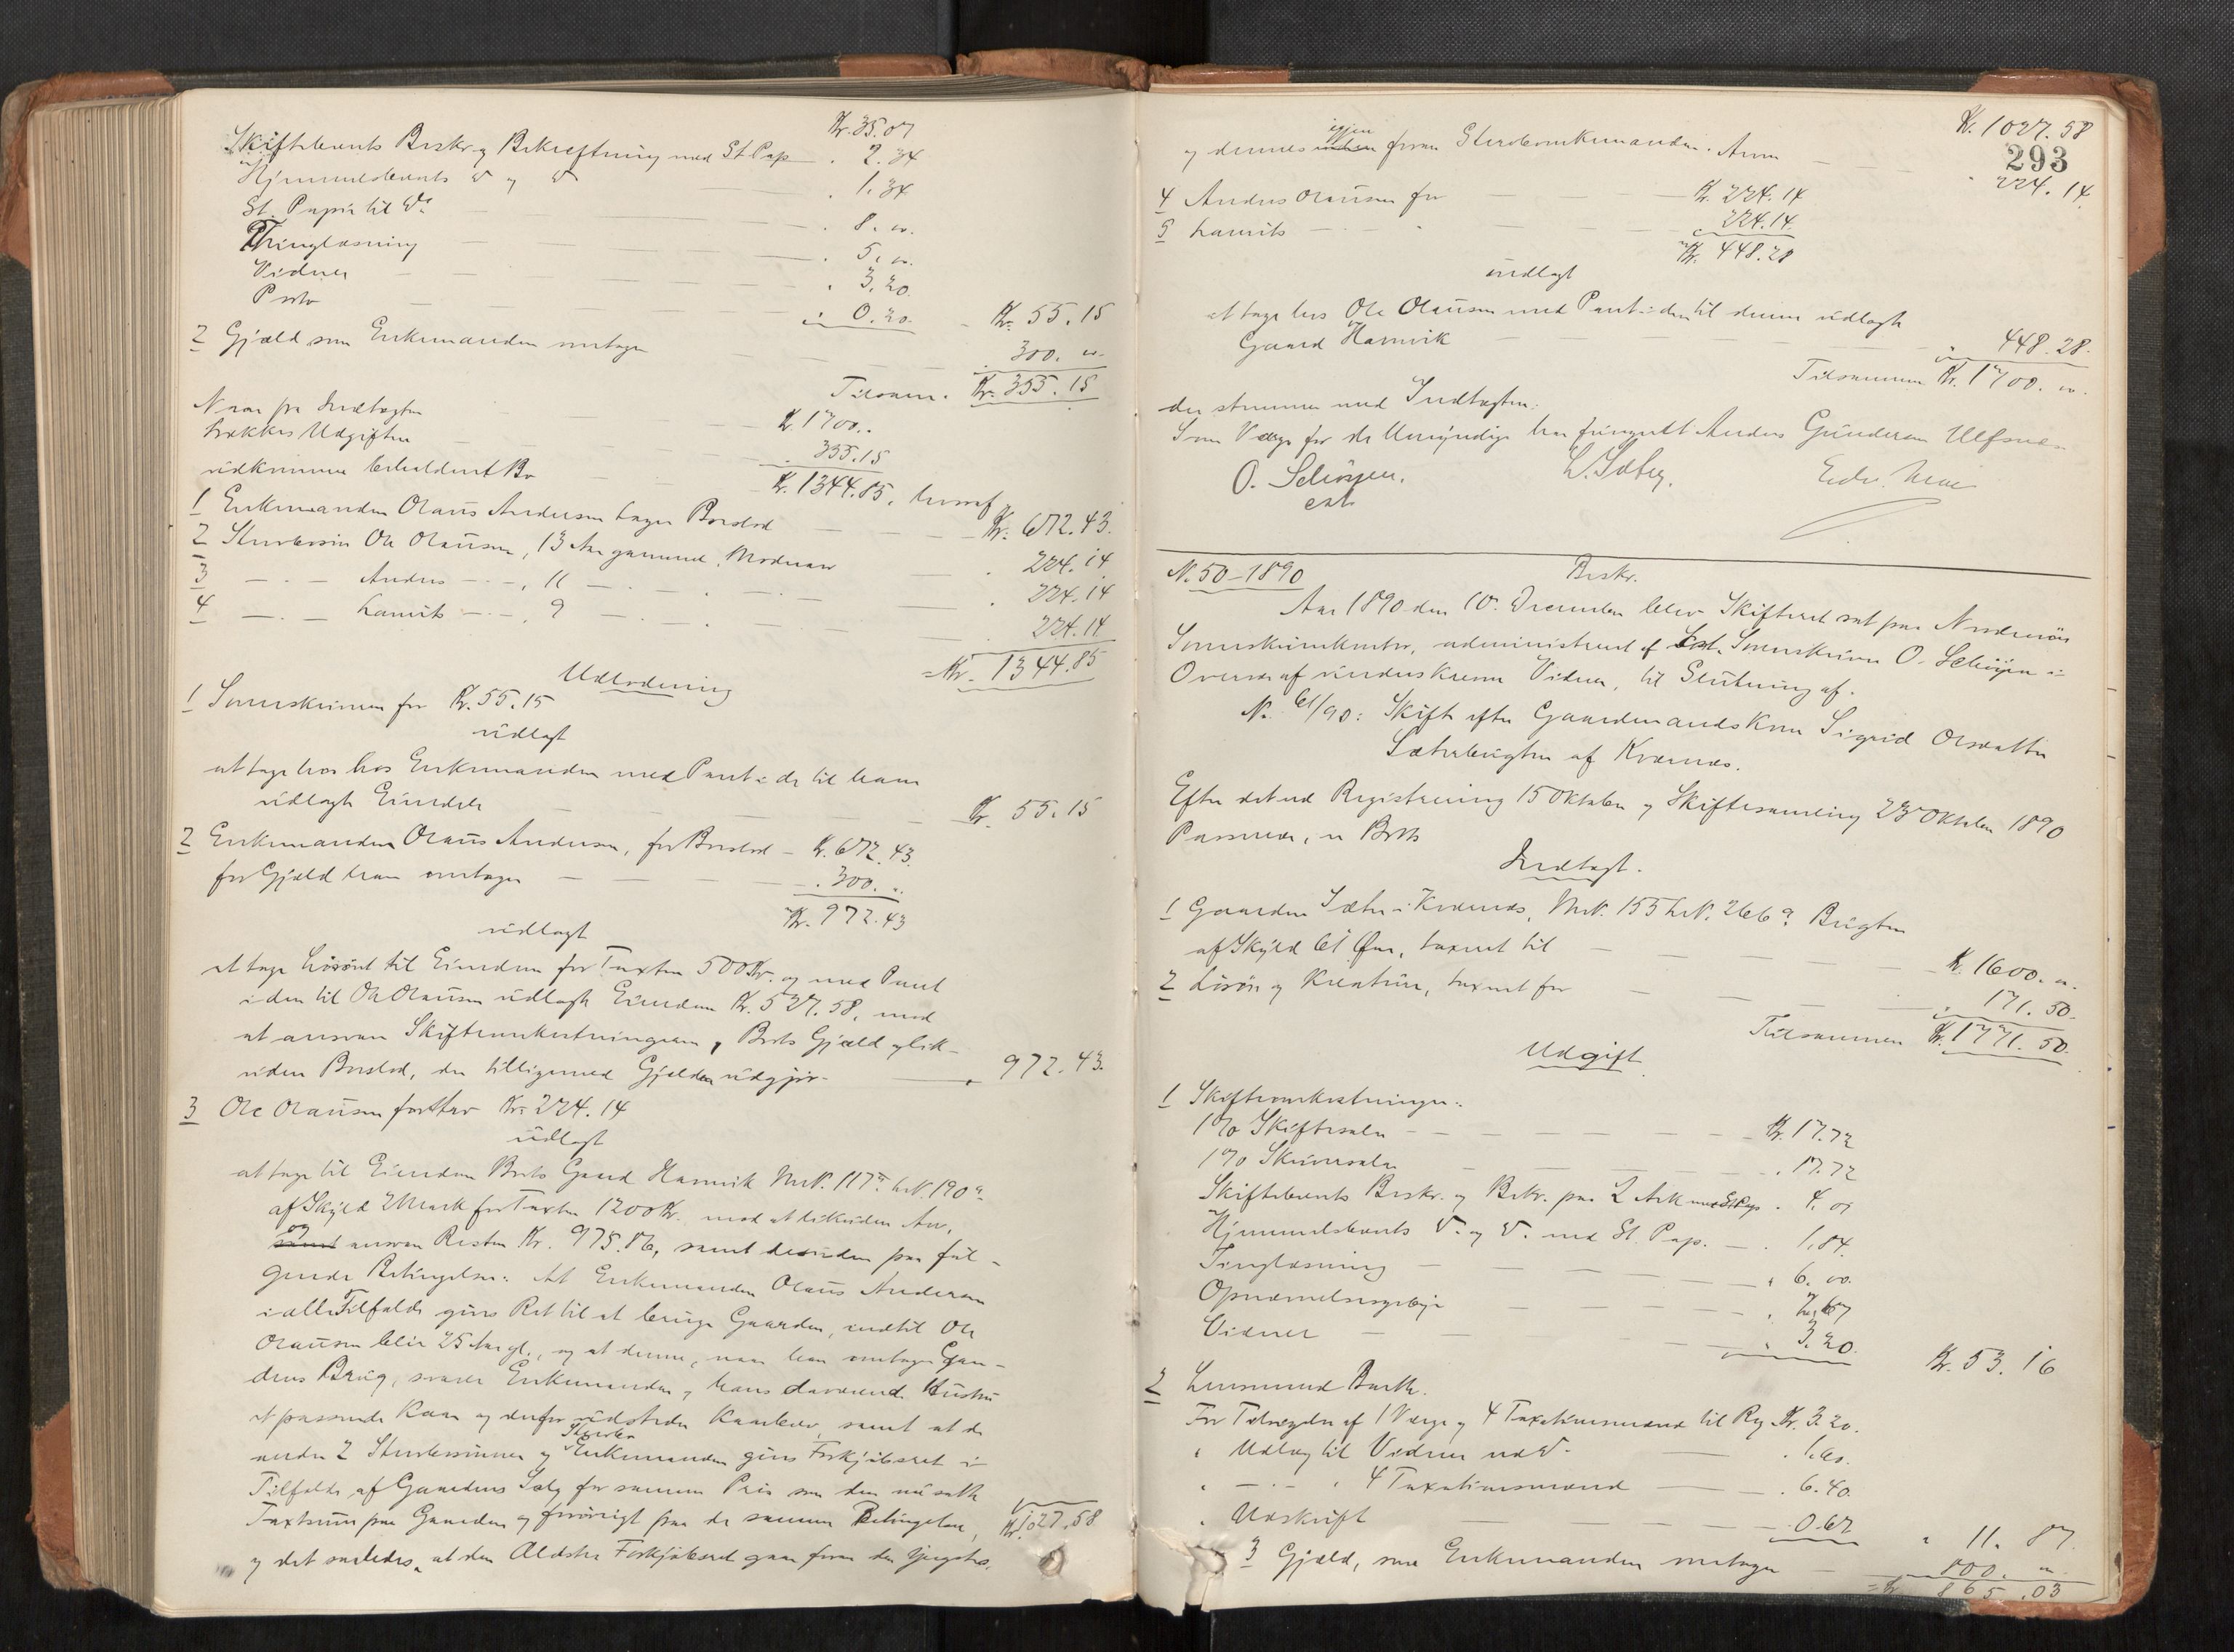 Kr. 35.07
Skiftebrevets Beskr. og Bekræftning med St. Pap. 2.34
Hjemmelsbrevets do og do 1.34
St. Papir til do 8. "
Thinglæsning 5. "
Vidner 3.20
Porto 0.20 Kr. 55.15
2 Gjæld som Enkemanden overtager 300. "
Tilsam. Kr. 355.15
Naar fra Indtægten Kr. 1700. "
trækkes Udgiften 355.15
udkommer beholdent Bo Kr. 1344.85, hvoraf
1 Enkemanden Olaus Andersen tager Boeslod Kr. 672.43
2 Stervbossøn Ole Olausen, 13 Aar gammel, Mødrenarv 224.14
3 — " — Anders — " —, 11 — " — 224.14
4 — " — Laurits — " —, 9 — " — 224.14
Kr. 1344.85
Udlodning
1 Sorenskriveren for Kr. 55.15
udlagt
at tage hos hos Enkemanden med Pant i de til ham
udlagte Eiendele Kr. 55.15
2 Enkemanden Olaus Andersen, for Boeslod — Kr. 672.43
for Gjæld han overtager — 300. "
Kr. 972.43
udlagt
at tage Løsøret til Eiendom for Taxten 500 Kr. og med Pant
i den til Ole Olausen udlagte Eiendom Kr. 527.58, mod
at ansvare Skifteomkostningerne, Boets Gjæld og lik-
videre Boeslod, der tilligemed Gjælden udgjør 972.43
3 Ole Olausen for Arv Kr. 224.14
udlagt
at tage til Eiendom Boets Gaard Hamvik MrN. 117 LN. 190a
af Skyld 2 Mark for Taxten 1200 Kr. mod at likvidere Arv,
og
samt ansvare Resten Kr. 975.86, samt desuden paa føl-
gende Betingelser: At Enkemanden Olaus Andersen
i alle Tilfælde gives Ret til at bruge Gaarden, indtil Ole
Olausen bliver 25 Aar gl., og at denne, naar han overtager Gaar-
dens Brug, svarer Enkemanden og hans daværende Hustru
et passende Kaar og derfor udsteder Kaarbrev, samt at de
andre 2 Stervbossønner og Enkemanden gives Forkjøbsret i
Tilfælde af Gaardens Salg for samme Pris som den nu satte
Taxtsum paa Gaarden og forøvrigt paa de samme Betingelser, Kr. 1027.58
og det saaledes, at den Ældstes Forkjøbsret gaar foran den Yngstes,
Kr. 1027.58
293
og dennes igjen foran Stervboenkemanden. Arven 224.14
4 Anders Olausen for Kr. 224.14
5 Laurits — " — 224.14
Kr. 448.28
udlagt
at tage hos Ole Olausen med Pant i den til denne udlagte
Gaard Hamvik 448.28
Tilsammen Kr. 1700. "
der stemmer med Indtægten.
Som Værge for de Umyndige har fungeret Anders Gunderson Ulfsnes
O. Schiøjen.
cst.
N. 50 – 1890 Beskr.
Aar 1890 den 10. December blev Skifteret sat paa Nordmøre
Sorenskriverkontor, administreret af cst. Sorenskriver O. Schiøjen i
Overvær af underskrevne Vidner, til Slutning af.
No. 61/90: Skifte efter Gaardmandskone Sigrid Olsdatter
Sæterbugten af Kværnes.
Efter det ved Registrering 15 Oktober og Skiftesamling 23 Oktober 1890
Passerede, er Boets
Indtægt.
1 Gaarden Sæter i Kværnes, MrN. 155 LrN. 266a Bugten
af Skyld 61 Øre, taxeret til Kr. 1600. "
2 Løsøre og Kreature, taxeret for 171.50
Tilsammen Kr. 1771.50
Udgift
1 Skifteomkostninger:
1% Skiftesalær Kr. 17.72
1% Skriversalær 17.72
Skiftebrevets Beskr. og Bekr. paa 2 Ark med St. Pap. 4.01
Hjemmelsbrevets do og do med St. Pap. 1.84
Tinglæsning 6.00
Opnævnelsesgebyr 2.67
Vidner 3.20 Kr. 53.16
2 Lensmand Barth.
For Tilsigelse af 1 Værge og 4 Taxationsmænd til Reg. Kr. 3.20
" Udlæg til Vidner ved do 1.60
" — " — " 4 Taxationsmænd 6.40
" Udskrift 0.67 " 11.87
3 Gjæld, som Enkemanden overtager 800. "
Kr. 865.03